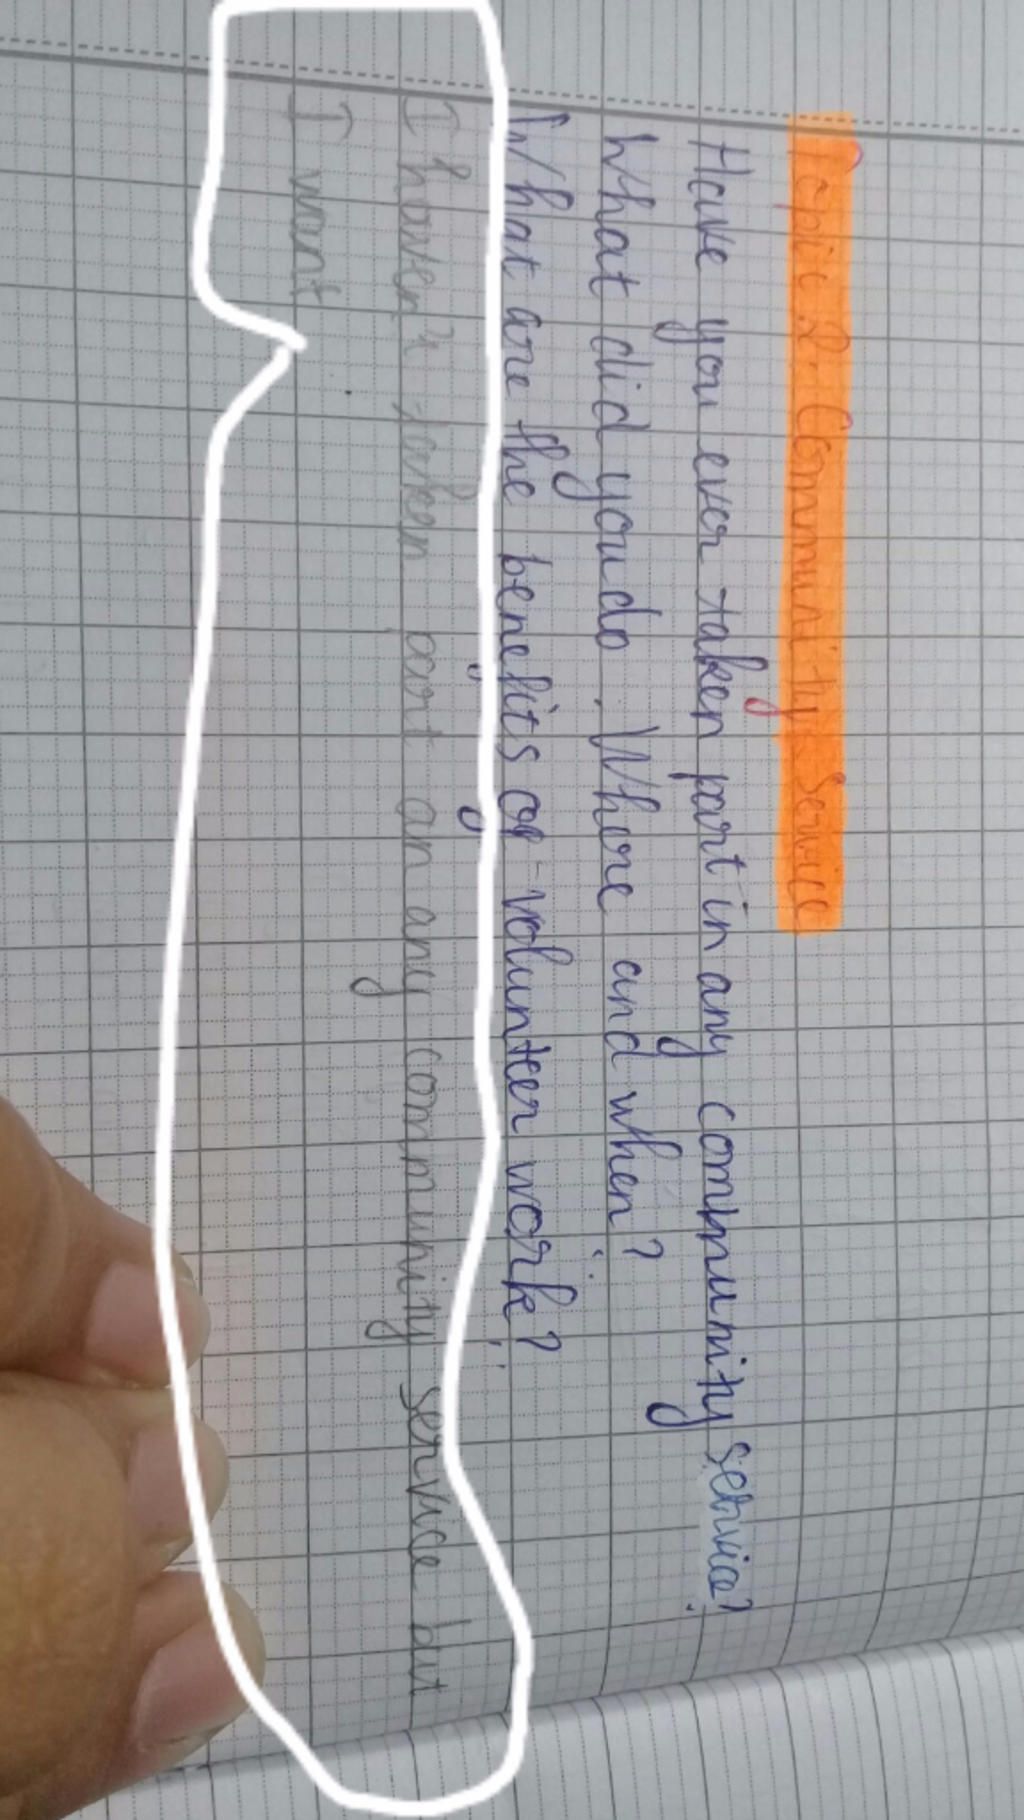 Topic 2: Community Service
Have you ever taken part in any community service?
What did you do. Where and when?
What are the benefits of volunteer work?
I haven't taken part an any community service but
I want